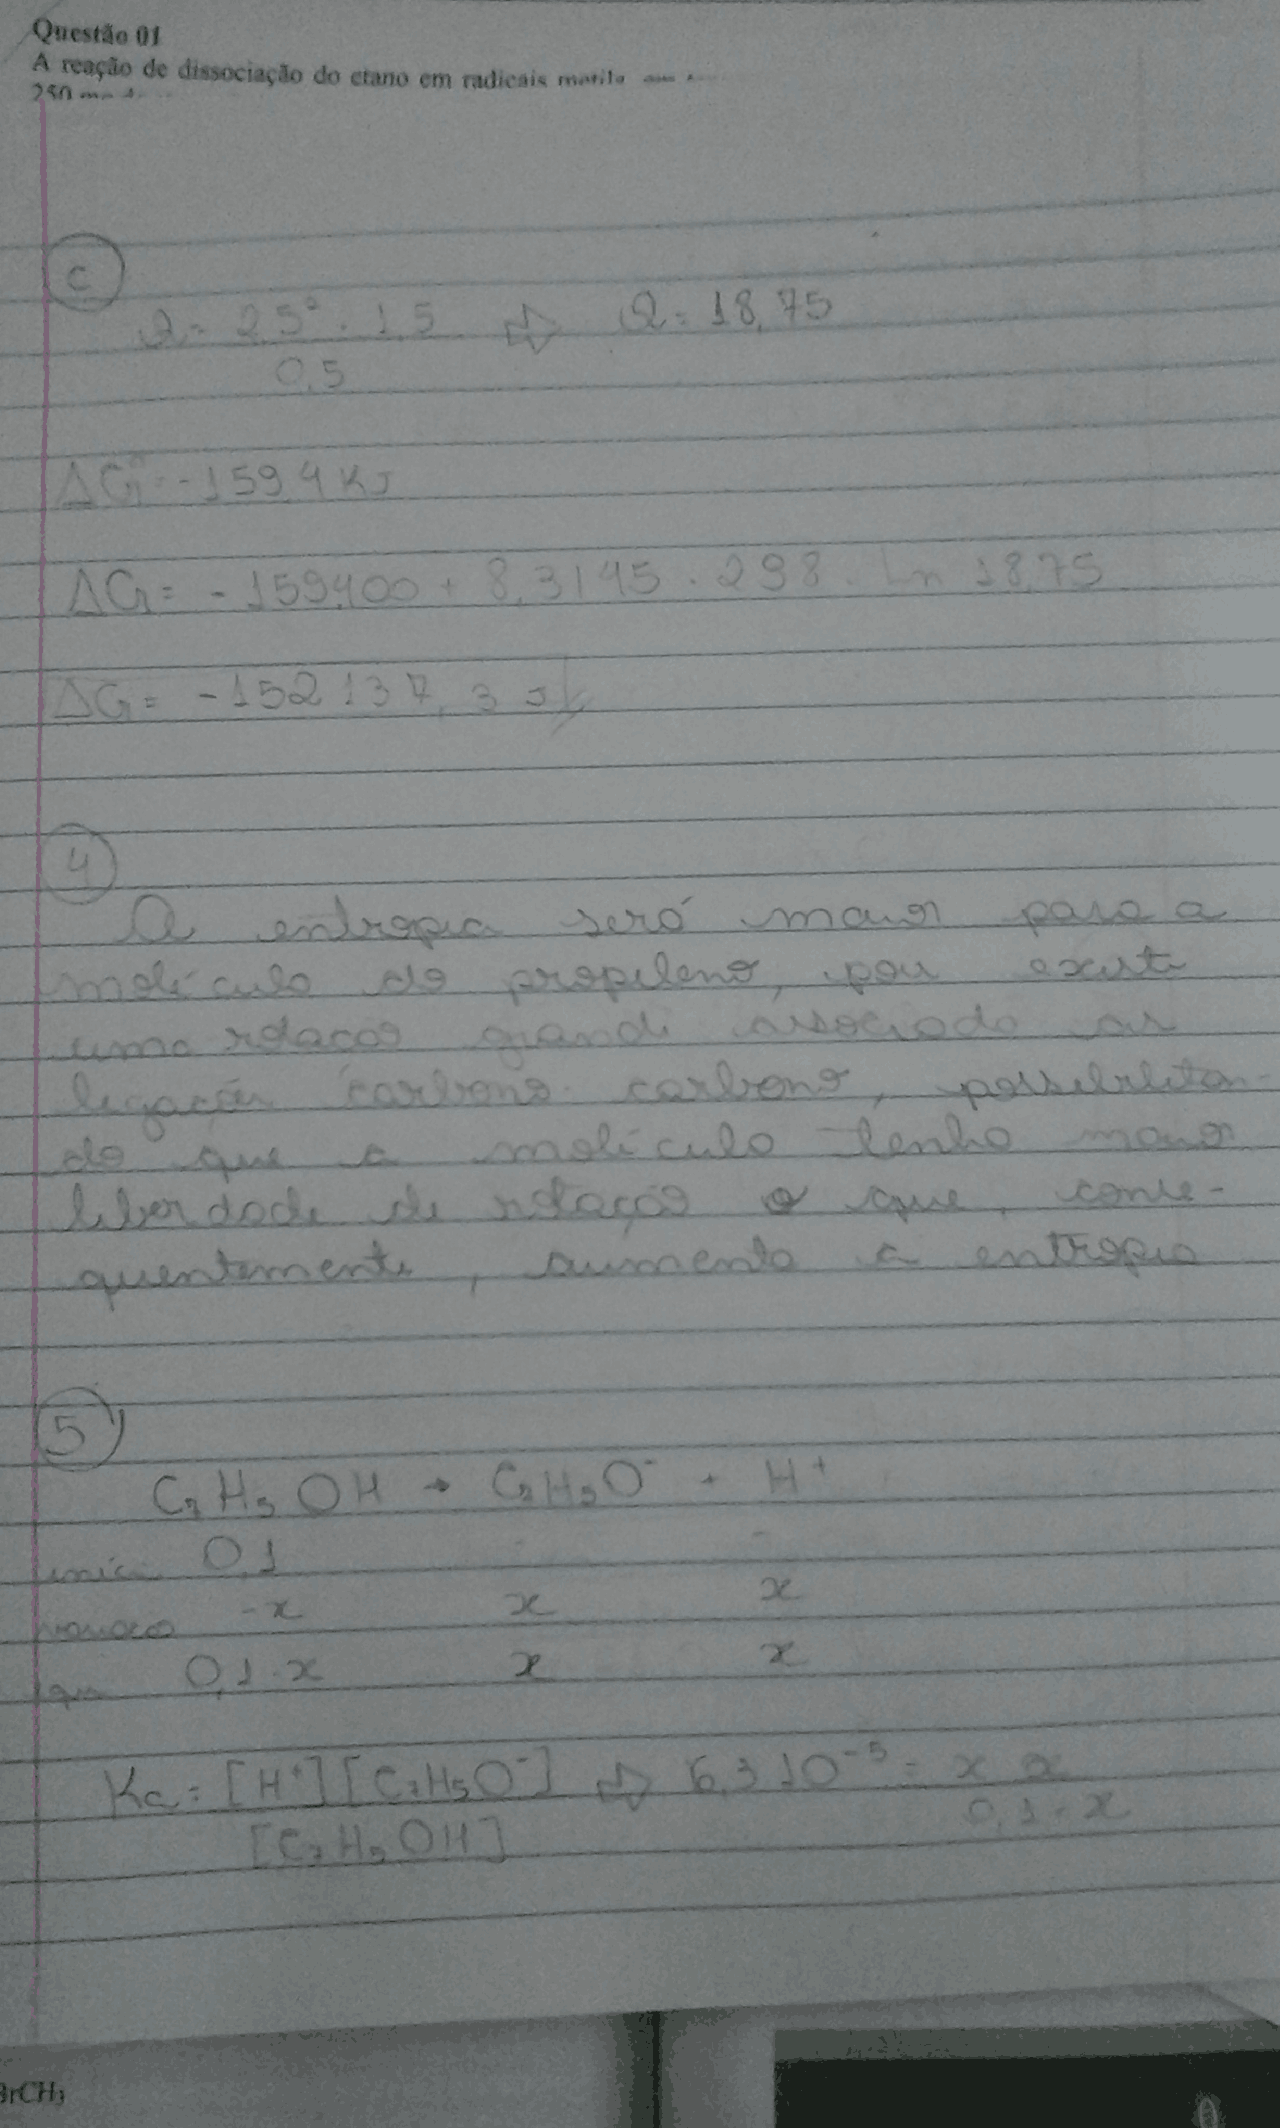 Questão 01
A reação de dissociação do etano em radicais metila
250
c
Q = 2,5² . 1,5 ⇨ Q = 18,75
0,5
ΔG° = -159,4 KJ
ΔG = -159400 + 8,3145 . 298 . Ln 18,75
ΔG = -152 137, 3 J
4
A entropia será maior para a
molécula do propileno, pois existe
uma rotação grande associada as
ligações carbono-carbono, possibilitan-
do que a molécula tenha maior
liberdade de rotação o que, conse-
quentemente, aumenta a entropia
5
C₂H₅OH → C₂H₅O⁻ + H⁺
0,1 - -
-x x x
0,1-x x x
Ka = [H⁺][C₂H₅O⁻] ⇨ 6,3 10⁻⁵ = x x
[C₂H₅OH] 0,1-x
BrCH₃